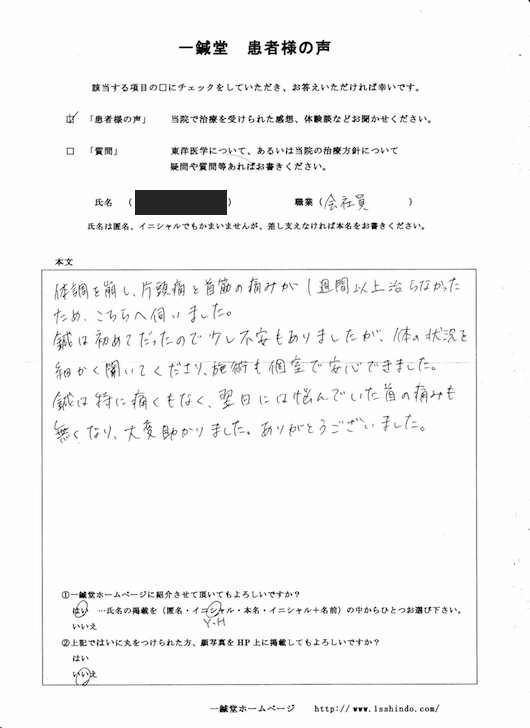 一鍼堂　患者様の声
該当する項目の□にチェックをしていただき、お答えいただければ幸いです。
☑ 「患者様の声」　当院で治療を受けられた感想、体験談などお聞かせください。
□ 「質問」　東洋医学について、あるいは当院の治療方針について
疑問や質問等あればお書きください。
氏名　（　）　職業（会社員　）
氏名は匿名、イニシャルでもかまいませんが、差し支えなければ本名をお書きください。
本文
体調を崩し、片頭痛と首筋の痛みが1週間以上治らなかった
ため、こちらへ伺いました。
鍼は初めてだったので少し不安もありましたが、体の状況を
細かく聞いてくださり、施術も個室で安心できました。
鍼は特に痛くもなく、翌日には悩んでいた首の痛みも
無くなり、大変助かりました。ありがとうございました。
①一鍼堂ホームページに紹介させて頂いてもよろしいですか？
はい　…氏名の掲載を（匿名・イニシャル・本名・イニシャル＋名前）の中からひとつお選び下さい。
Y・H
いいえ
②上記ではいに丸をつけられた方、顔写真をHP上に掲載してもよろしいですか？
はい
いいえ
一鍼堂ホームページ　http://www.1sshindo.com/